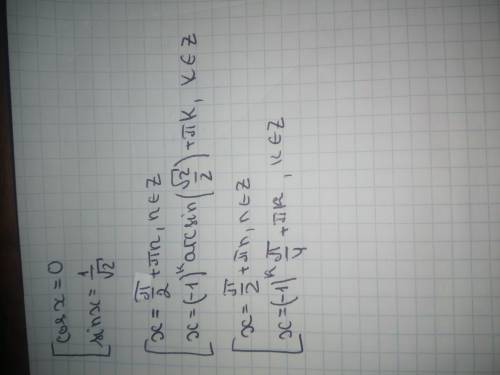 cos x = 0
sin x = 1/√2
x = π/2 + πn, n ∈ Z
x = (-1)^k arcsin(√2/2) + πk, k ∈ Z
x = π/2 + πn, n ∈ Z
x = (-1)^k π/4 + πk, k ∈ Z